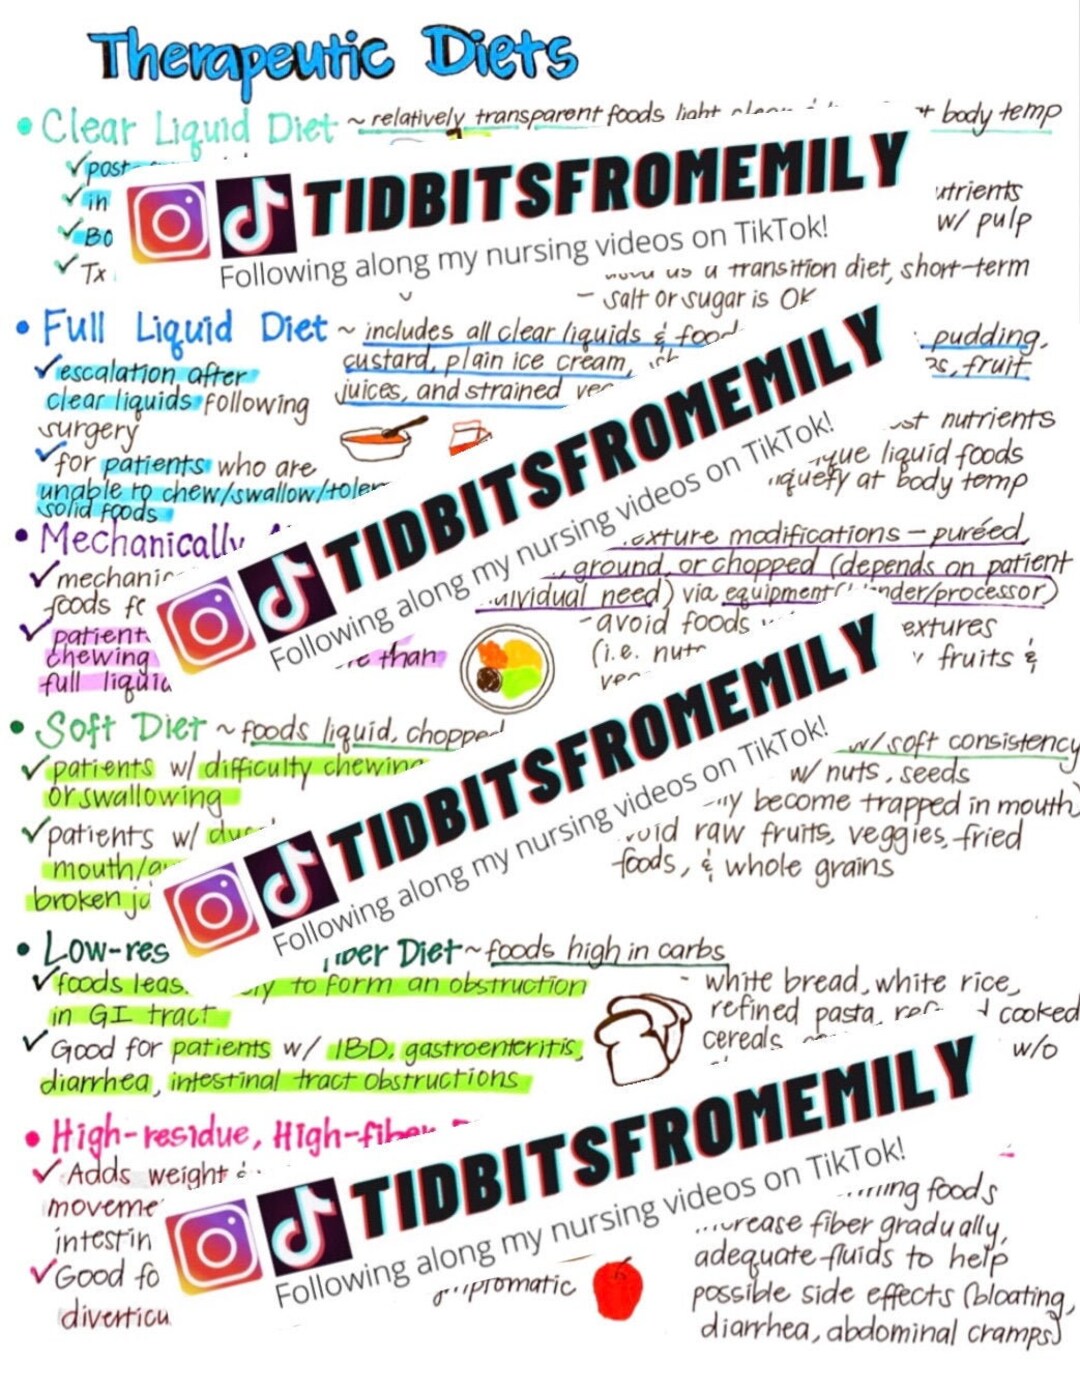 Therapeutic Diets
• Clear Liquid Diet ~ relatively transparent foods light body temp
✓post-
✓in utrients
✓BO w/ pulp
✓Tx us a transition diet, short-term
- salt or sugar is OK
TIDBITSFROMEMILY
Following along my nursing videos on TikTok!
• Full Liquid Diet ~ includes all clear liquids & food pudding,
custard, plain ice cream, fruit
juices, and strained
✓escalation after
clear liquids following
surgery
✓for patients who are
unable to chew/swallow/toler
solid foods
nutrients
liquid foods
at body temp
TIDBITSFROMEMILY
Following along my nursing videos on TikTok!
• Mechanically
exture modifications – puréed,
ground, or chopped (depends on patient
individual need) via equipment nder/processor)
✓mechanic
foods fo
✓patient
chewing
full liquid
than
-avoid foods extures
(i.e. nut fruits &
• Soft Diet ~ foods liquid, chopped w/soft consistency
✓patients w/ difficulty chewing
or swallowing
✓patients w/
mouth/
broken
w/ nuts, seeds
become trapped in mouth)
void raw fruits, veggies, fried
foods, & whole grains
TIDBITSFROMEMILY
Following along my nursing videos on TikTok!
• Low-res iber Diet ~ foods high in carbs
✓foods leas ly to form an obstruction
in GI tract
✓Good for patients w/ IBD, gastroenteritis,
diarrhea, intestinal tract obstructions
- white bread, white rice,
refined pasta, cooked
cereals w/o
• High-residue, High-fiber
✓Adds weight
moveme
intestin
✓Good fo
diverticu
TIDBITSFROMEMILY
Following along my nursing videos on TikTok!
foods
increase fiber gradually,
adequate fluids to help
possible side effects (bloating,
diarrhea, abdominal cramps)